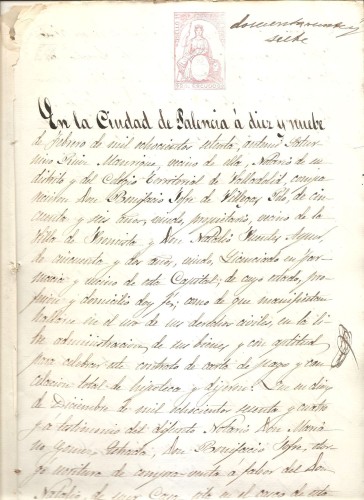 doscientos cuarenta y
siete
En la Ciudad de Palencia á diez y nuebe
de Febrero de mil ochocientos setenta, ante mi Satur-
nino Pérez Manrique, vecino de ella, Notario de su
distrito y del Colegio Territorial de Valladolid, compa-
recieron Don Bonifacio de Villegas de cin-
cuenta y seis años, viudo, propietario, vecino de la
Villa de y Don Natalio Fuentes
de cincuenta y dos años, viudo, Licenciado en far-
macia y vecino de esta Capital; de cuyo estado, pro-
fesion y domicilio doy fé; como de que manifiestan
hallarse en el uso de sus derechos civiles, en la li-
bre administracion de sus bienes y con aptitud
para celebrar este contrato de carta de pago y can-
celacion total de hipoteca y dijeron: Que en diez
de Diciembre de mil ochocientos sesenta y cuatro
y a testimonio del difunto Notario Don Maria-
no Gomez Estrada, Don Bonifacio otor-
gó escritura de compra-venta á favor del Don
Natalio, de una Casa, sita en el casco de esta